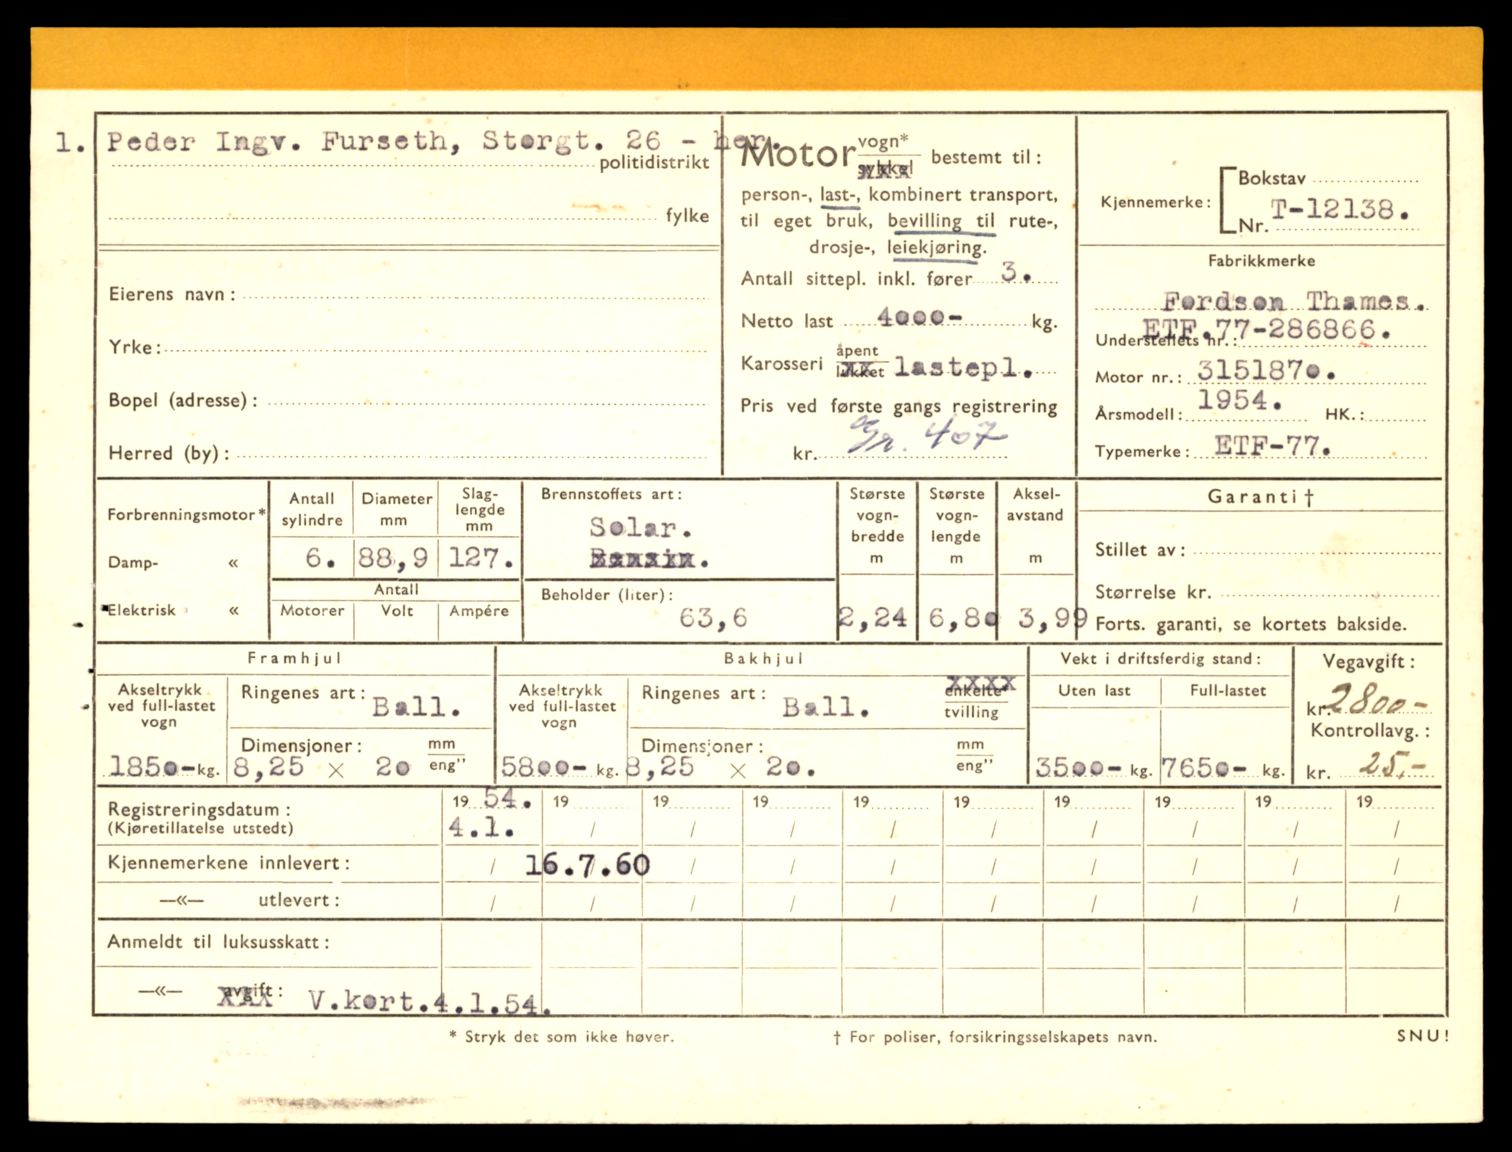 1. Peder Ingv. Furseth, Storgt. 26 - her.
politidistrikt
fylke
Eierens navn :
Yrke :
Bopel (adresse) :
Herred (by) :
Motor vogn* sykkel bestemt til :
person-, last-, kombinert transport,
til eget bruk, bevilling til rute-,
drosje-, leiekjøring.
Antall sittepl. inkl. fører 3.
Netto last 4000- kg.
Karosseri åpent lukket lastepl.
Pris ved første gangs registrering
kr. Gr. 407
Kjennemerke : Bokstav
Nr. T-12138.
Fabrikkmerke
Fordson Thames.
Understellets nr. : ETF.77-286866.
Motor nr. : 3151870.
Årsmodell : 1954. HK. :
Typemerke : ETF-77.
Forbrenningsmotor*
Damp- «
Elektrisk «
Antall sylindre
Diameter mm
Slag-lengde mm
6. 88,9 127.
Antall
Motorer Volt Ampére
Brennstoffets art :
Solar.
Bensin.
Beholder (liter) :
63,6
Største vogn-bredde m
Største vogn-lengde m
Aksel-avstand m
2,24 6,80 3,99
Garanti †
Stillet av :
Størrelse kr.
Forts. garanti, se kortets bakside.
Framhjul
Akseltrykk ved full-lastet vogn
1850- kg.
Ringenes art : Ball.
Dimensjoner : mm eng"
8,25 x 20
Bakhjul
Akseltrykk ved full-lastet vogn
5800- kg.
Ringenes art : Ball. enkelte tvilling
Dimensjoner : mm eng"
8,25 x 20.
Vekt i driftsferdig stand :
Uten last Full-lastet
3500- kg. 7650- kg.
Vegavgift :
kr. 2800-
Kontrollavg. :
kr. 25,-
Registreringsdatum : 19 54. 19 19 19 19 19 19 19 19 19
(Kjøretillatelse utstedt) 4.1. / / / / / / / / /
Kjennemerkene innlevert : / 16.7.60 / / / / / / / /
—«— utlevert : / / / / / / / / / /
Anmeldt til luksusskatt :
—«— avgift : V.kort.4.1.54.
* Stryk det som ikke høver. † For poliser, forsikringsselskapets navn. SNU!